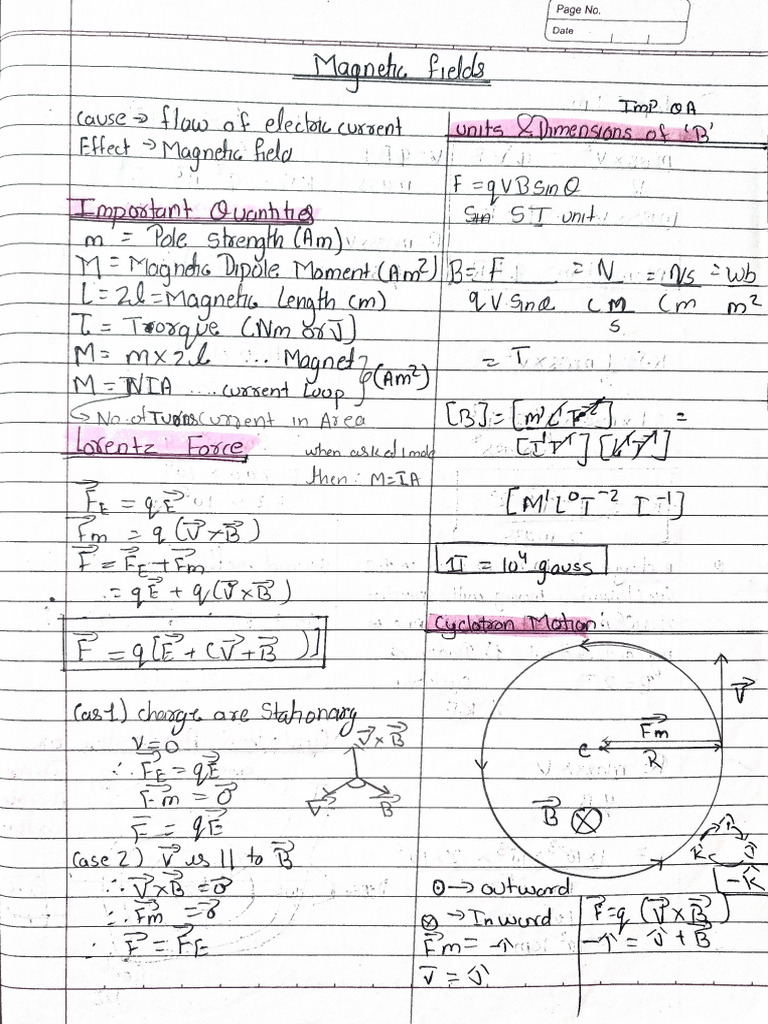 Page No.
Date
Magnetic fields
Cause → flow of electric current
Effect → Magnetic field
Important Quantities
m = Pole Strength (Am)
M = Magnetic Dipole Moment (Am²)
L = 2l = Magnetic Length (m)
τ = Torque (Nm or J)
M = m×2l ... Magnet } (Am²)
M = NIA .... current Loop
↳ No. of Turns current in Area
Lorentz Force
when asked 1 mark
then: M=IA
F⃗E = qE⃗
F⃗m = q (V⃗×B⃗)
F⃗ = F⃗E + F⃗m
= qE⃗ + q(V⃗×B⃗)
F⃗ = q[E⃗ + (V⃗+B⃗ )]
Cas 1) charge are Stationary
V=0
∴ F⃗E = qE⃗
F⃗m = 0⃗
F⃗ = qE⃗
V⃗×B⃗
V⃗
B⃗
Case 2) V⃗ is || to B⃗
∴ V⃗×B⃗ = 0⃗
∴ F⃗m = 0⃗
∴ F⃗ = F⃗E
Imp QA
Units & Dimensions of 'B'
F = qVB Sin θ
SI unit
B = F/qV Sin θ = N/(C M/s) = Ns/Cm = wb/m²
= T
[B] = [M¹ L¹ T⁻²]/[I¹T¹] [L¹T⁻¹] =
[M¹L⁰T⁻² I⁻¹]
1T = 10⁴ gauss
Cyclotron Motion:
V⃗
F⃗m
C
R
B⃗ ⊗
î
k̂ ĵ
-k̂
⊙ → outword
⊗ → Inword
F⃗m = -î
V⃗ = ĵ
F⃗=q (V⃗×B⃗)
-î = ĵ + B⃗